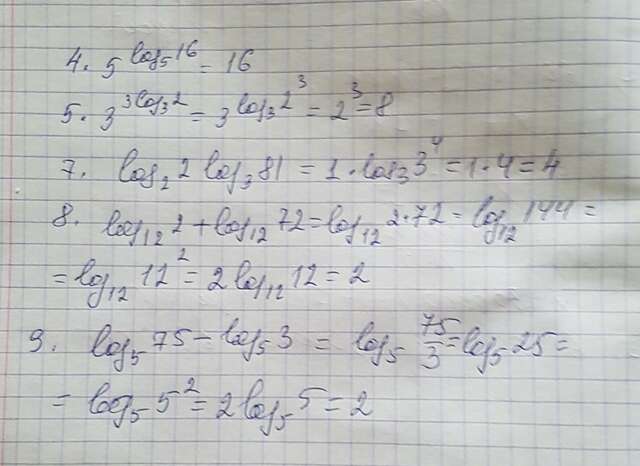 4. 5^{log₅16} = 16
5. 3^{3log₃2} = 3^{log₃2³} = 2³ = 8
7. log₂ 2 log₃ 81 = 1 · log₃ 3⁴ = 1 · 4 = 4
8. log₁₂ 2 + log₁₂ 72 = log₁₂ 2 · 72 = log₁₂ 144 =
= log₁₂ 12² = 2 log₁₂ 12 = 2
9. log₅ 75 − log₅ 3 = log₅ 75/3 = log₅ 25 =
= log₅ 5² = 2 log₅ 5 = 2